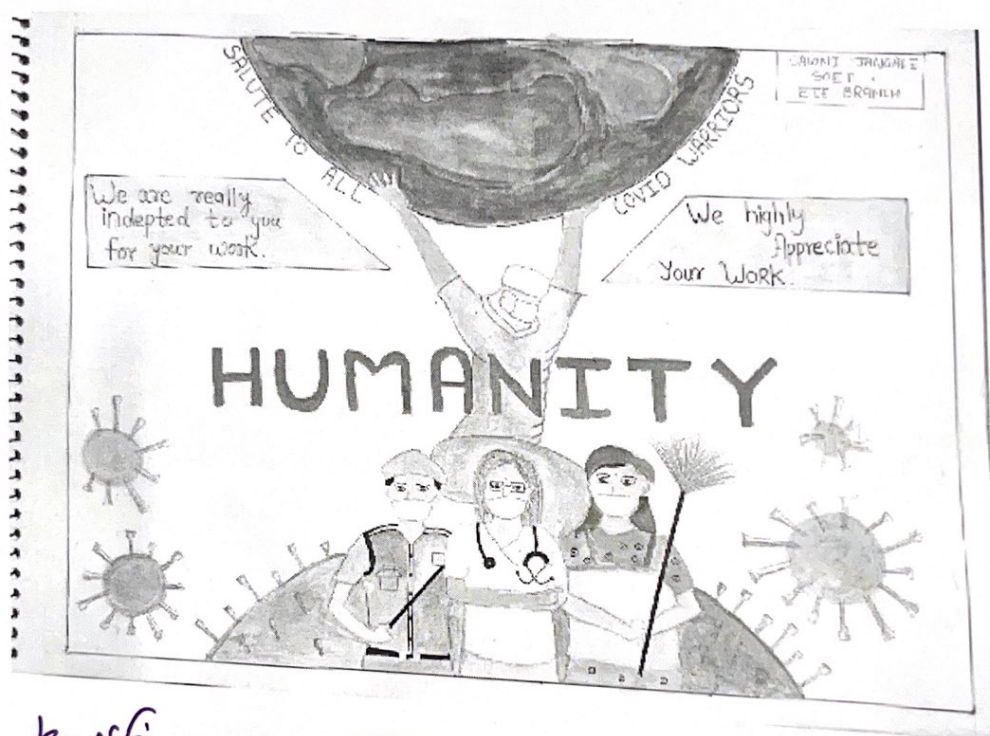 SALUTE TO ALL COVID WARRIORS
SAWNI JANGALE
SOET.
ETE BRANCH
We are really
indepted to you
for your work.
We highly
Appreciate
Your Work.
HUMANITY